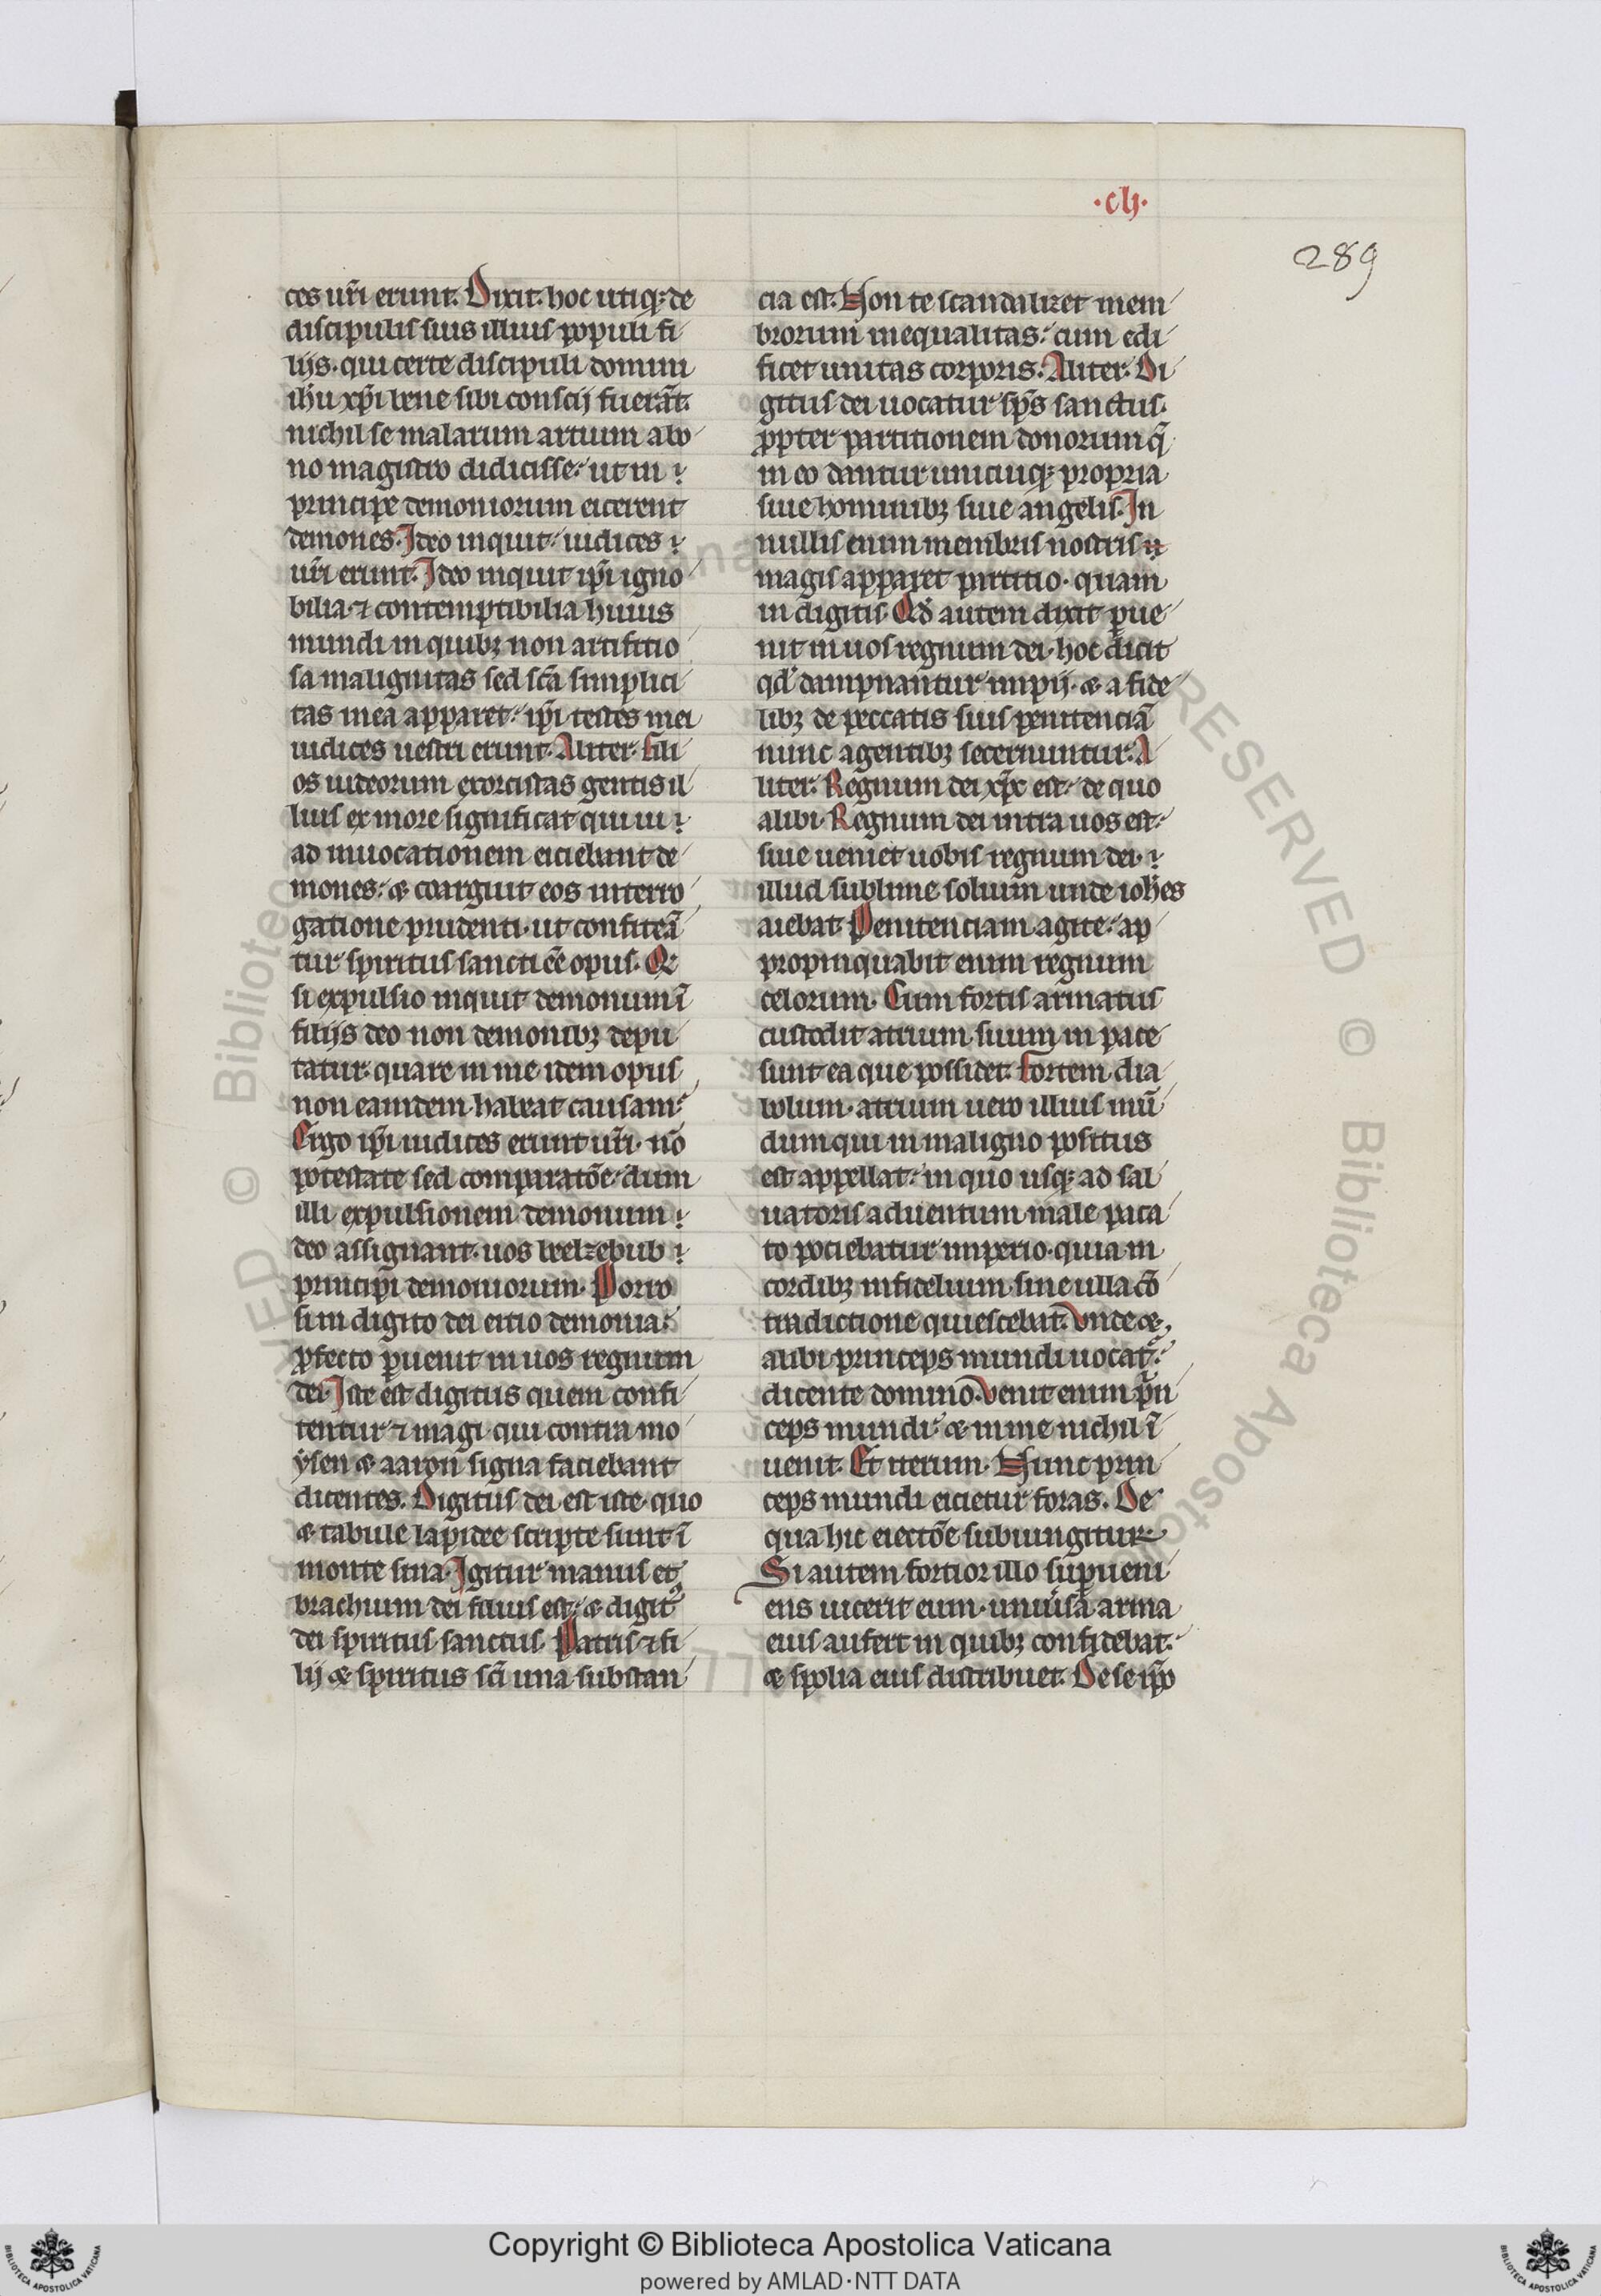 ·clj·
289
ces ur̃i erunt. Dixit. hoc utiq; de
discipulis suis illius populi fi
lijs. qui certe discipuli domini
ih̃u xp̃i bene sibi conscij fuerãt.
nichil se malarum artium a bo
no magistro didicisse. ut in
principe demoniorum eicerent
demones. Ideo inquit iudices
ur̃i erunt. Ideo inquit ip̃i igno
bilia ⁊ contemptibilia huius
mundi in quibz non artifitio
sa malignitas sed sc̃a simplici
tas mea apparet. ip̃i testes mei
iudices uestri erunt. Aliter. Fili
os iudeorum exorcistas gentis il
lius ex more significat qui in
ad inuocationem eiciebant de
mones. & coarguit eos interro
gatione prudenti. ut confiteã
tur spiritus sancti eẽ opus. Q͛
si expulsio inquit demonum ĩ
filijs deo non demonibz depu
tatur. quare in me idem opus
non eamdem habeat causam.
Ergo ip̃i iudices erunt ur̃i. nõ
potestate sed comparatõe. dum
illi expulsionem demonum
deo assignant. uos beelzebub
principi demoniorum. Porro
si in digito dei eitio demonia.
ꝓfecto ꝑuenit in uos regnum
dei. Iste est digitus quem confi
tentur ⁊ magi qui contra mo
ysen & aaron signa faciebant
dicentes. Digitus dei est iste. quo
& tabule lapidee scripte sunt ĩ
monte sina. Igitur manus et
brachium dei filius est. & digitꝰ
dei spiritus sanctus. Patris ⁊ fi
lij & spiritus sc̃i una substan
cia est. Non te scandalizet mem
brorum inequalitas. cum edi
ficet unitas corporis. Aliter. Di
gitus dei uocatur sp̃s sanctus.
ꝓpter partitionem donorum q̃
in eo dantur unicuiq; propria
siue hominibz siue angelis. In
nullis enim membris nostris
magis apparet partitio. quam
in digitis. Qd̃ autem dixit ꝑue
nit in uos regnum dei. hoc dicit
qd̃ dampnantur impij. & a fide
libz de peccatis suis penitenciã
nunc agentibz secernuntur. A
liter. Regnum dei xp̃c est. de quo
alibi. Regnum dei intra uos est.
siue ueniet uobis regnum dei.
illud sublime solium unde ioh̃es
aiebat. Penitenciam agite. ap
propinquabit enim regnum
celorum. Cum fortis armatus
custodit atrium suum in pace
sunt ea que possidet. Fortem dia
bolum. atrium uero illius mũ
dum qui in maligno positus
est appellat. in quo usq; ad sal
uatoris aduentum male paca
to pociebatur imperio. quia in
cordibz infidelium sine ulla cõ
tradictione quiescebat. Vnde &
alibi princeps mundi uocat᷑.
dicente domino. Venit enim prin
ceps mundi. & in me nichil ĩ
uenit. Et iterum. Hunc prin
ceps mundi eicietur foras. De
qua hic eiectõe subiungitur
Si autem fortior illo suꝑueni
ens uicerit eum. uniũsa arma
eius aufert in quibz confidebat.
& spolia eius distribuet. De se ip̃o
Copyright © Biblioteca Apostolica Vaticana
powered by AMLAD·NTT DATA